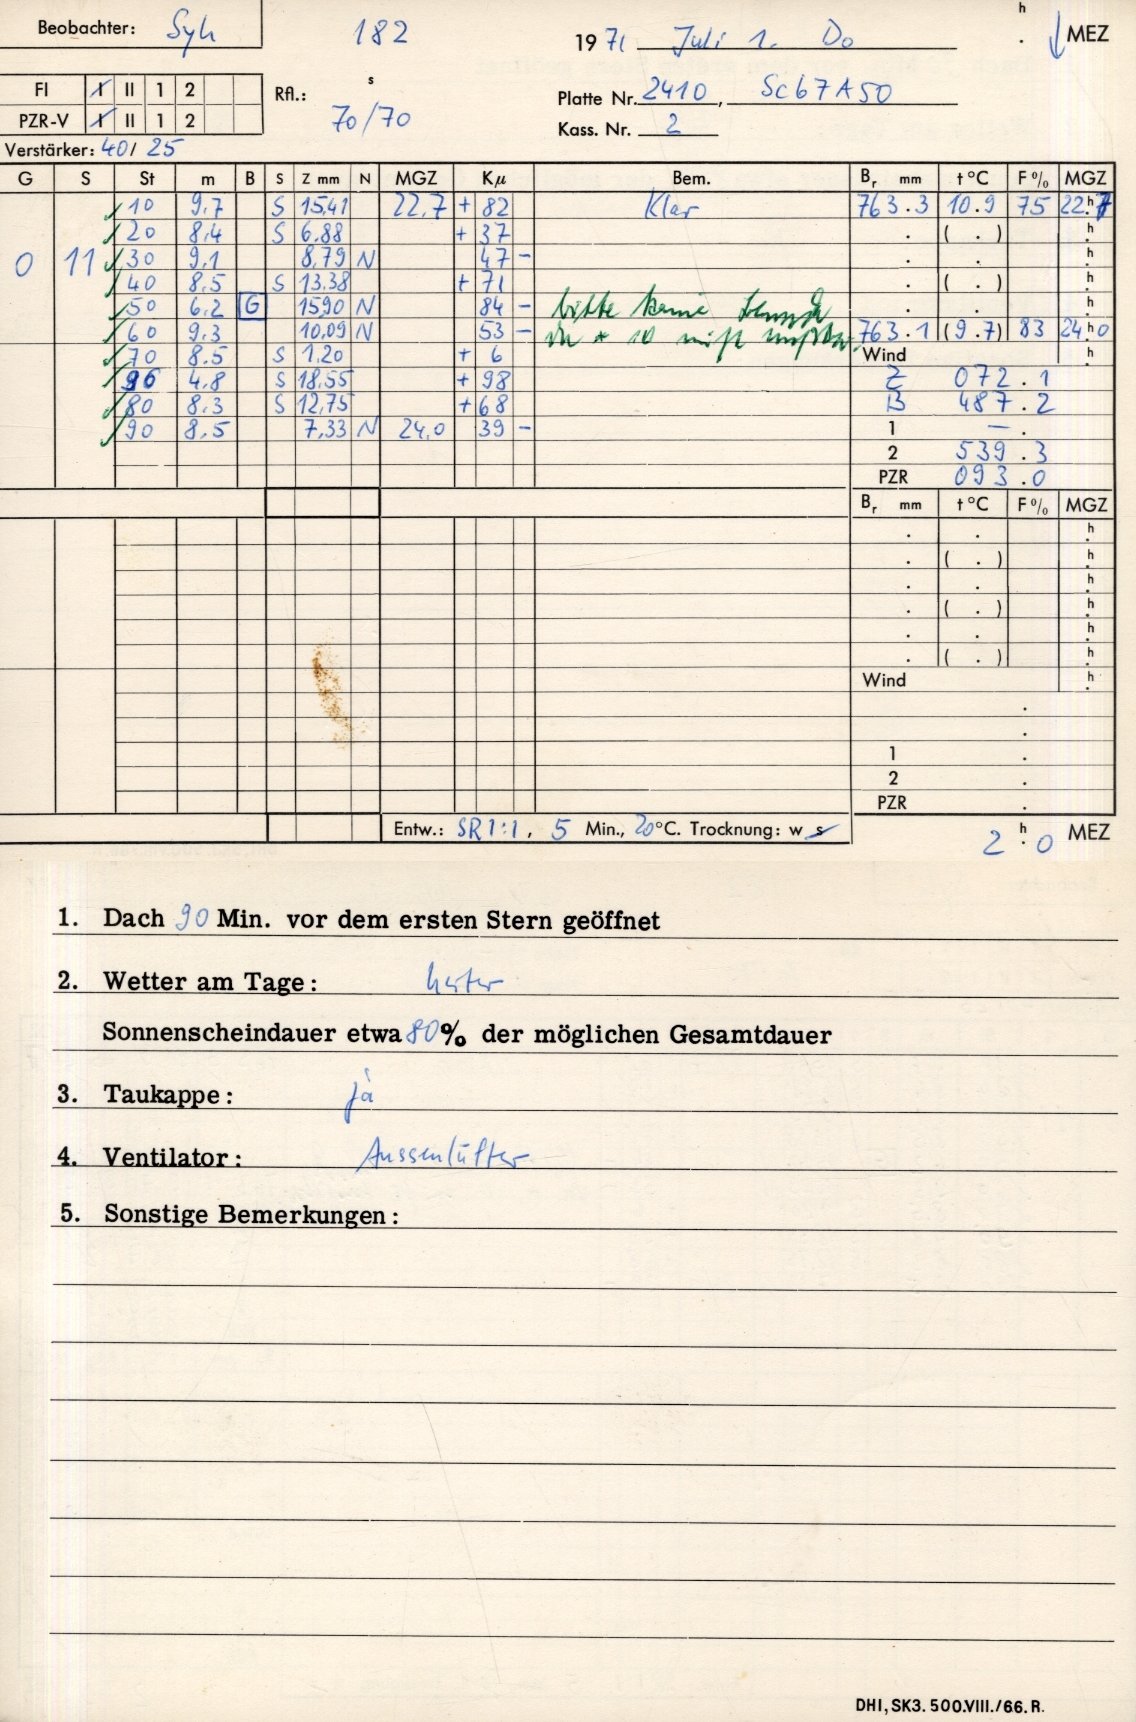 Beobachter: Syh 182 1971 Juli 1. Do h . MEZ
FI I II 1 2 Rfl.: s Platte Nr. 2410, Sc67A50
PZR-V I II 1 2 70/70 Kass. Nr. 2
Verstärker: 40/ 25
G S St m B S Z mm N MGZ Kµ Bem. Br mm t °C F % MGZ
10 9.7 S 15,41 22,7 + 82 Klar 763.3 10.9 75 22.h7
20 8,4 S 6.88 + 37 . ( . ) h
0 11 30 9,1 8,79 N 47 - . . h
40 8.5 S 13.38 + 71 . ( . ) h
50 6,2 G 15,90 N 84 - bitte keine . . h
60 9,3 10,09 N 53 - 763.1 (9.7) 83 24.h0
70 8.5 S 1.20 + 6 Wind h
96 4,8 S 18,55 + 98 Z 072.1
80 8,3 S 12,75 + 68 B 487.2
90 8.5 7,33 N 24,0 39 - 1 — .
2 539.3
PZR 093.0
Br mm t °C F % MGZ
. . h
. ( . ) h
. . h
. ( . ) h
. . h
. ( . ) h
Wind h
.
.
1 .
2 .
PZR .
Entw.: SR 1:1, 5 Min., 20°C. Trocknung: w s
2 h. 0 MEZ
1. Dach 90 Min. vor dem ersten Stern geöffnet
2. Wetter am Tage: heiter
Sonnenscheindauer etwa 80% der möglichen Gesamtdauer
3. Taukappe: ja
4. Ventilator: Aussenlüfter
5. Sonstige Bemerkungen:
DHI, SK3. 500.VIII./66. R.